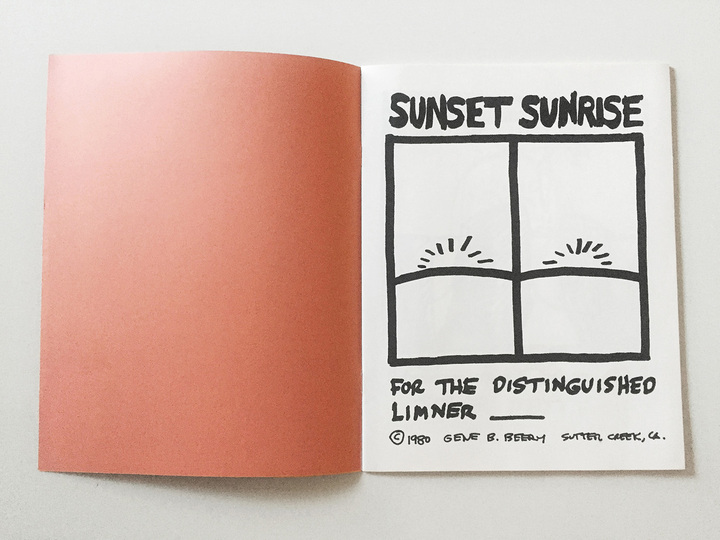 SUNSET SUNRISE
FOR THE DISTINGUISHED
LIMNER ____
© 1980 GENE B. BEERY SUTTER CREEK, CA.